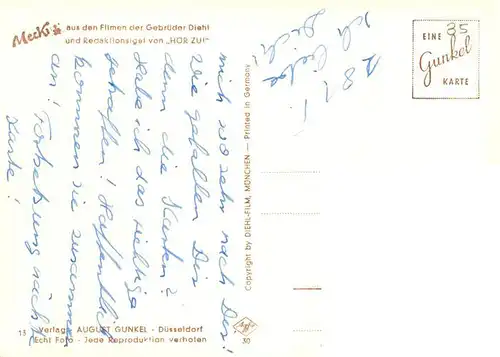 Mecki aus den Filmen der Gebrüder Diehl
und Redaktionsigel von „HÖR ZU!"
mich so sehr nach Dir!
Wie gefallen Dir
denn die Karten?
Habe ich das richtige
getroffen! Hoffentlich
kommen sie zusammen
an! Fortsetzung nächste
Karte!
Ich liebe
Dich!
Copyright by DIEHL-FILM, MÜNCHEN — Printed in Germany
EINE
35
Gunkel
KARTE
13
Verlag AUGUST GUNKEL · Düsseldorf
Echt Foto - Jede Reproduktion verboten
Agfa
30